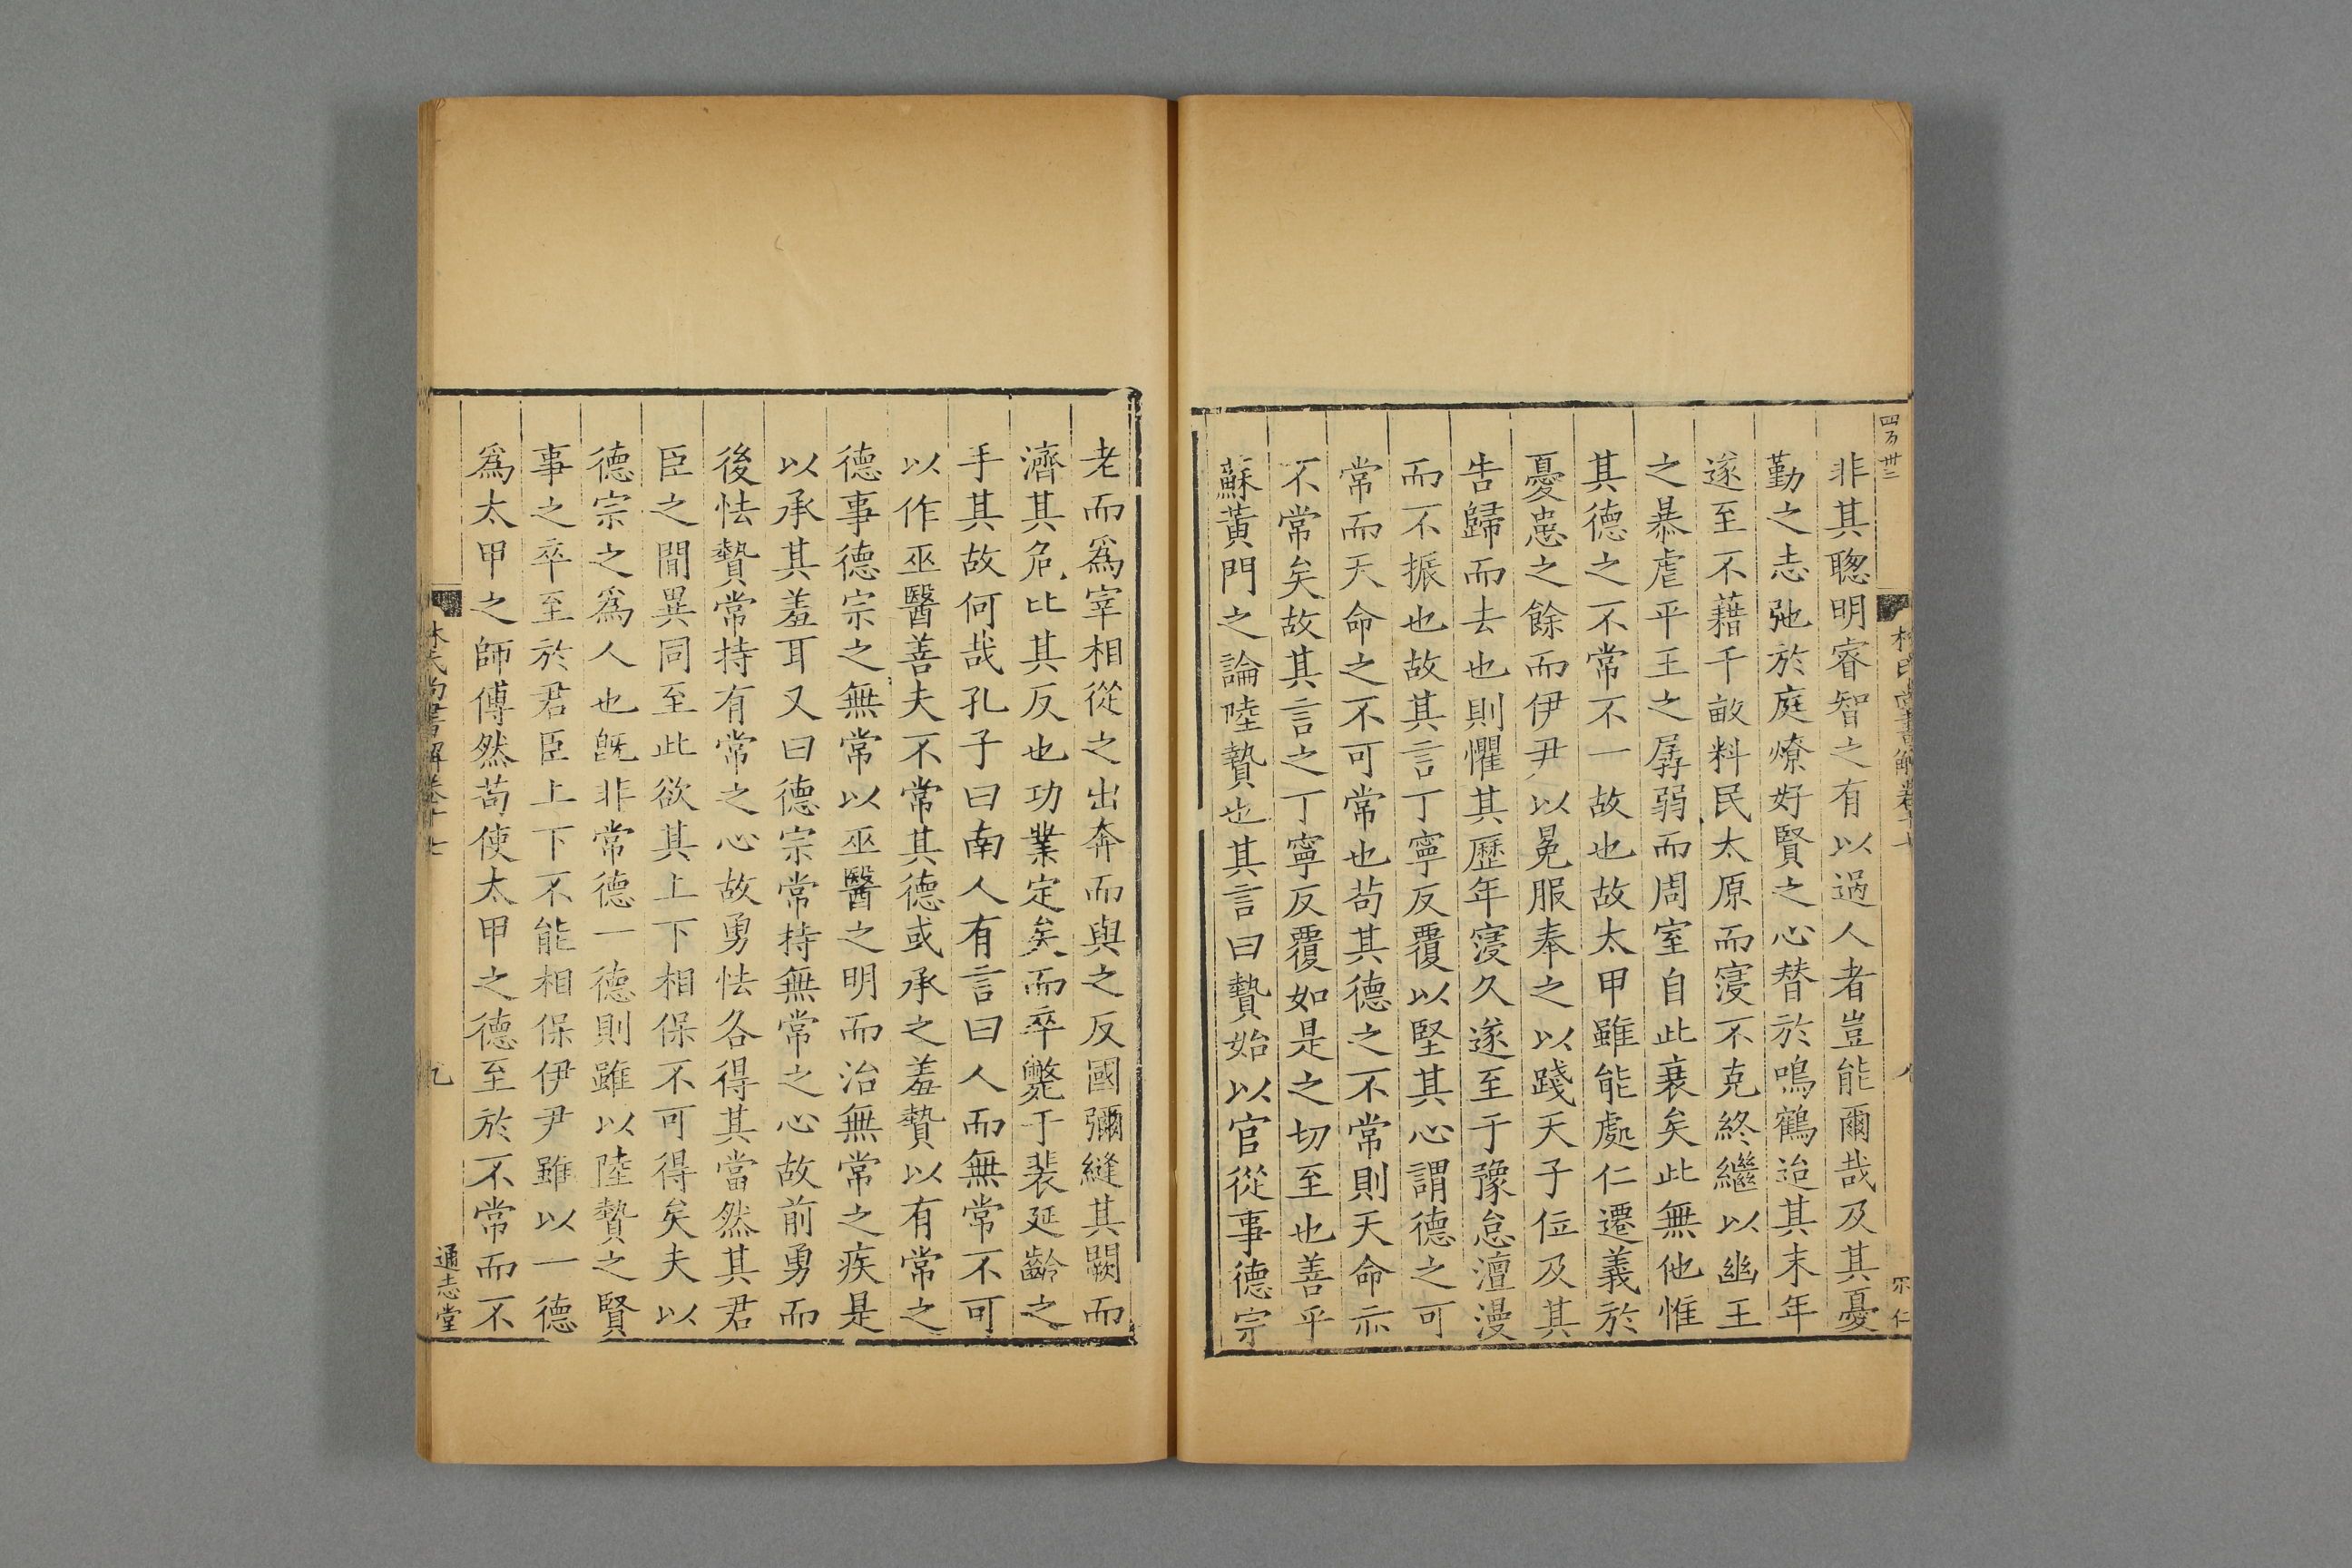 四百卅二
林氏尚書解卷十七
八
非其聰明睿智之有以過人者豈能爾哉及其憂
勤之志弛於庭燎好賢之心替於鳴鶴迨其末年
遂至不藉千畝料民太原而寖不克終繼以幽王
之暴虐平王之孱弱而周室自此衰矣此無他惟
其德之不常不一故也故太甲雖能處仁遷義於
憂患之餘而伊尹以冕服奉之以踐天子位及其
告歸而去也則懼其歷年寖久遂至于豫怠澶漫
而不振也故其言丁寧反覆以堅其心謂德之可
常而天命之不可常也苟其德之不常則天命亦
不常矣故其言之丁寧反覆如是之切至也善乎
蘇黃門之論陸贄也其言曰贄始以官從事德宗
老而爲宰相從之出奔而與之反國彌縫其闕而
濟其危比其反也功業定矣而卒斃于裴延齡之
手其故何哉孔子曰南人有言曰人而無常不可
以作巫醫善夫不常其德或承之羞贄以有常之
德事德宗之無常以巫醫之明而治無常之疾是
以承其羞耳又曰德宗常持無常之心故前勇而
後怯贄常持有常之心故勇怯各得其當然其君
臣之閒異同至此欲其上下相保不可得矣夫以
德宗之爲人也旣非常德一德則雖以陸贄之賢
事之卒至於君臣上下不能相保伊尹雖以一德
爲太甲之師傅然苟使太甲之德至於不常而不
林氏尚書解卷十七
九
通志堂